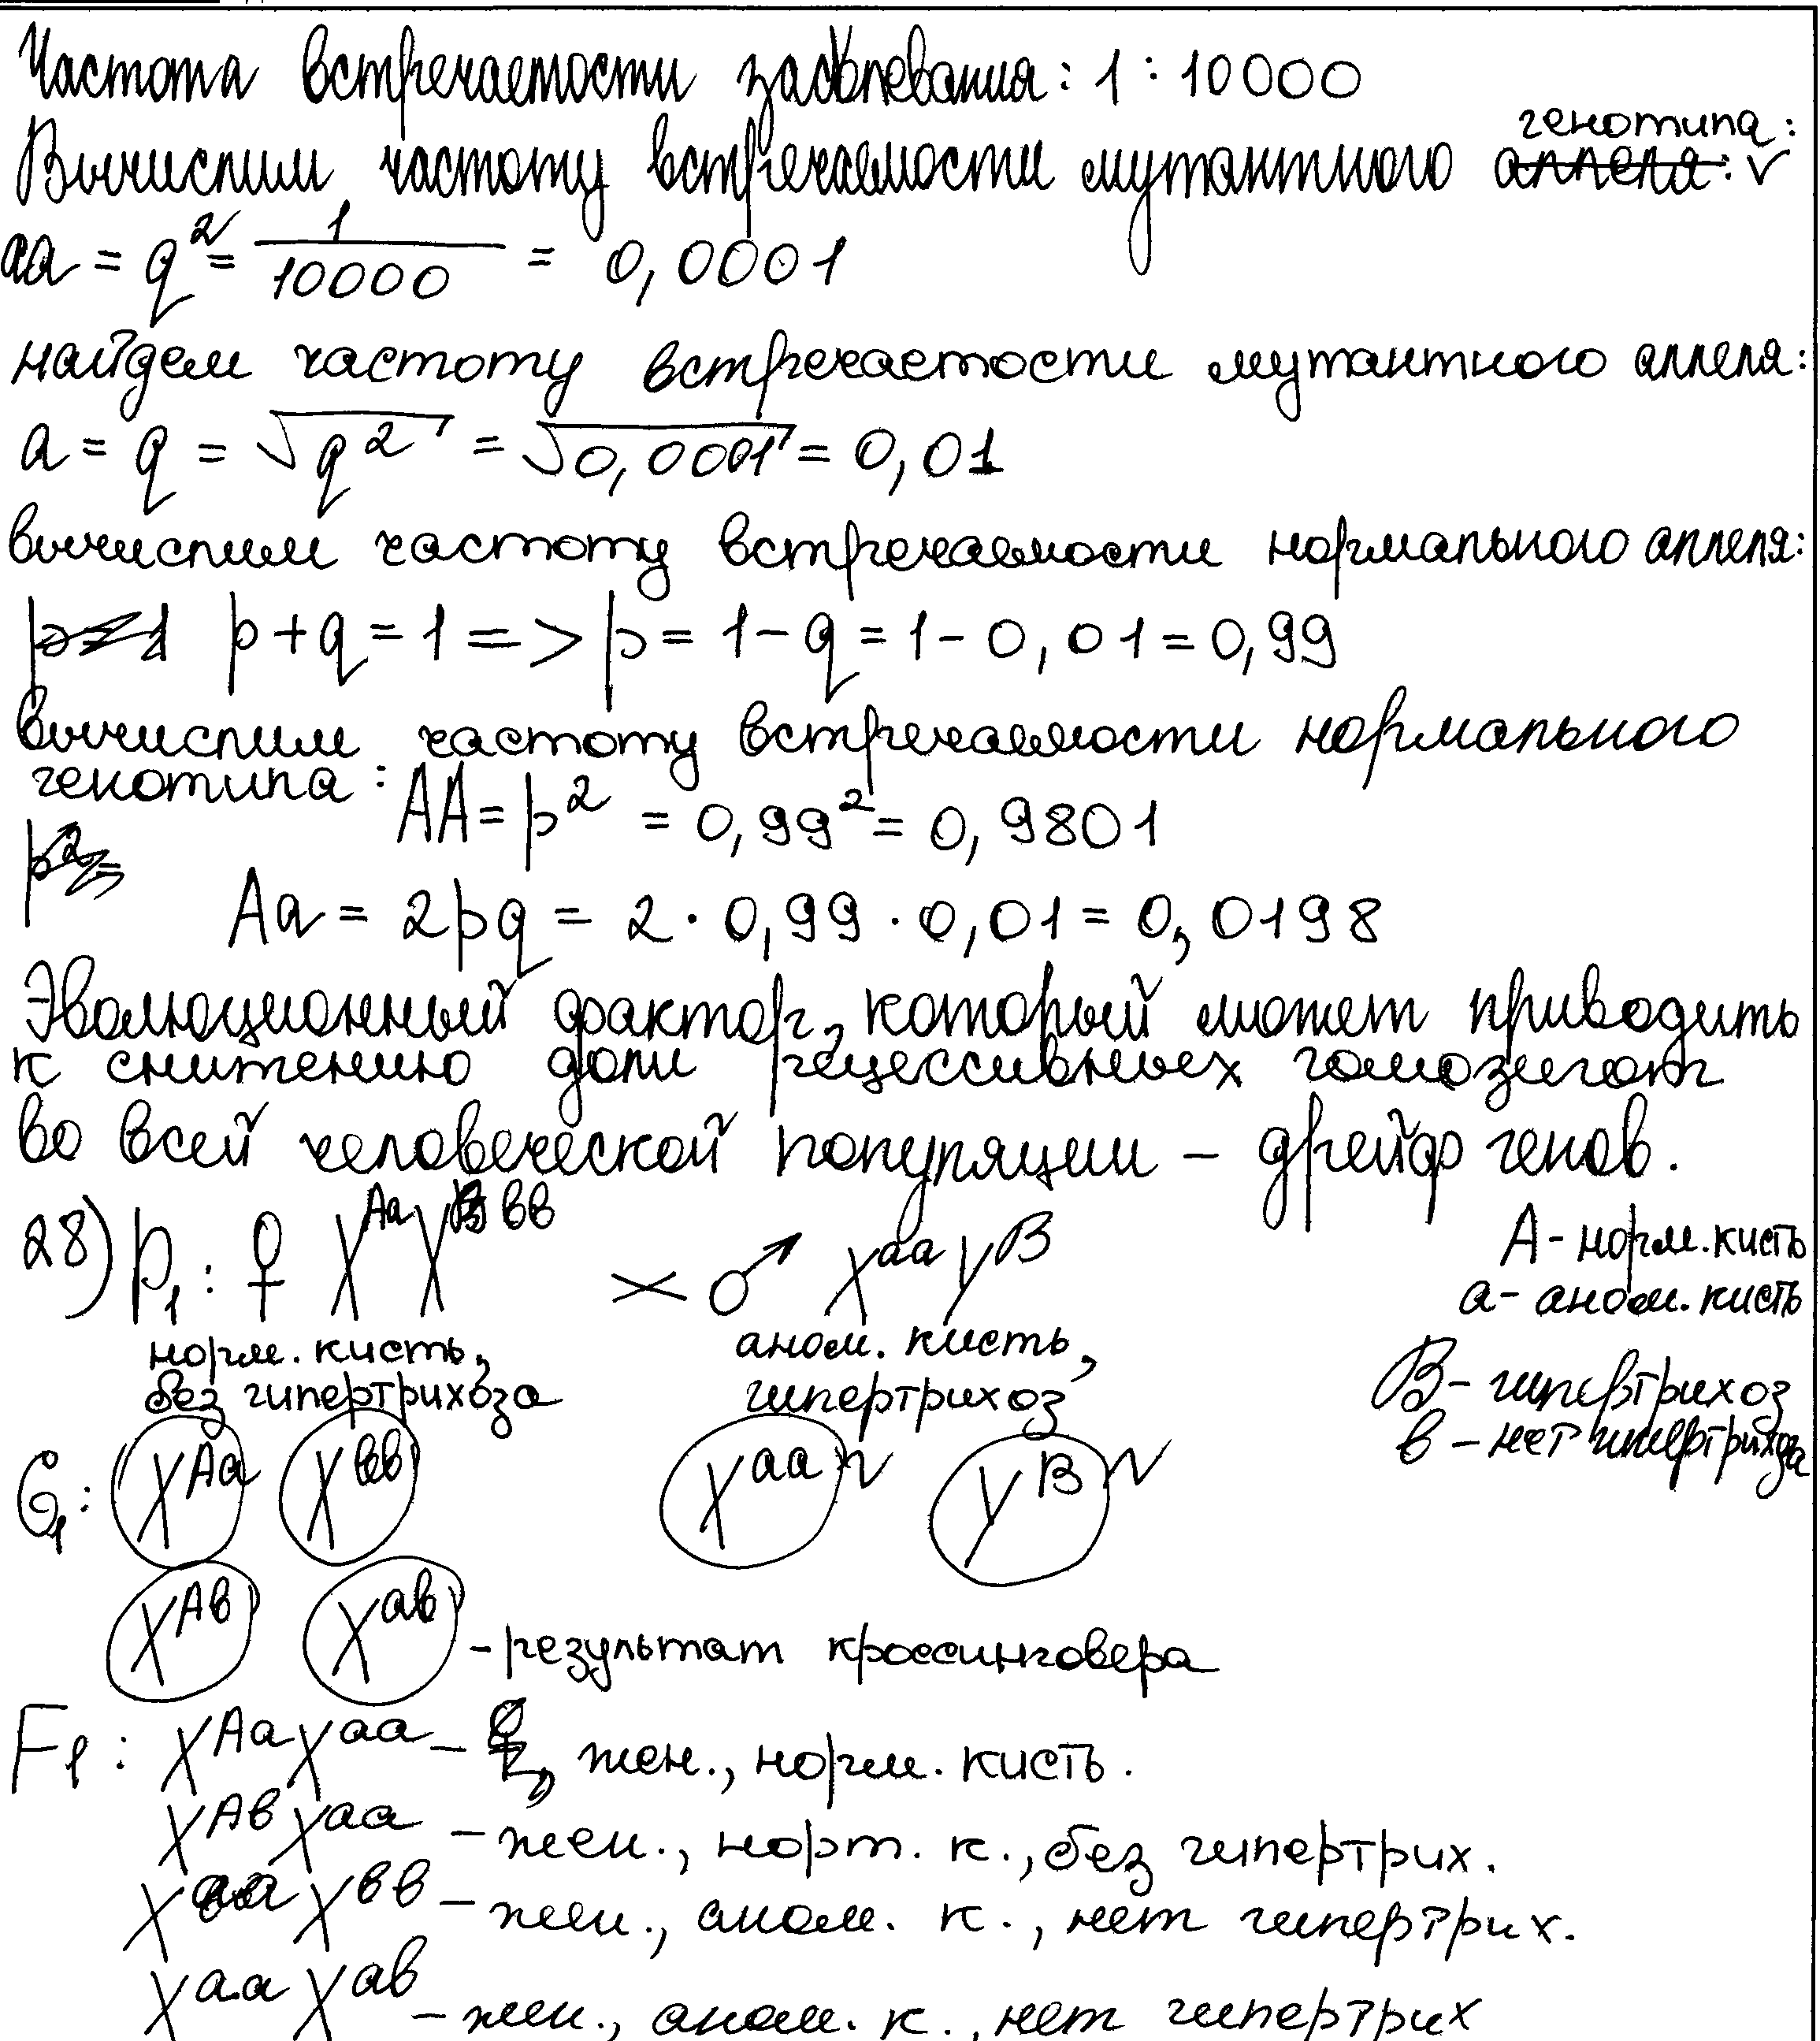 Частота встречаемости заболевания: 1 : 10000
генотипа:
Вычислим частоту встречаемости мутантного аллеля: V
aa = q² = 1/10000 = 0,0001
найдем частоту встречаемости мутантного аллеля:
a = q = √q² = √0,0001 = 0,01
вычислим частоту встречаемости нормального аллеля:
p+q = 1 => p = 1-q = 1-0,01 = 0,99
вычислим частоту встречаемости нормального
генотипа: AA = p² = 0,99² = 0,9801
p² =
Aa = 2pq = 2 · 0,99 · 0,01 = 0,0198
Эволюционный фактор, который может приводить
к снижению доли рецессивных гомозигот
во всей человеческой популяции – дрейф генов.
28) P₁: ♀ X^Aa X^вв × ♂ X^aa Y^B
A - норм. кисть
a - аном. кисть
норм. кисть, аном. кисть,
без гипертрихоза гипертрихоз
B - гипертрихоз
в - нет гипертрихоза
G₁: X^Aa X^вв X^aa Y^B
X^Aв X^aв - результат кроссинговера
F₁: X^Aa X^aa - жен., норм. кисть.
X^Aв X^aa - жен., норм. к., без гипертрих.
X^aa X^вв - жен., аном. к., нет гипертрих.
X^aa X^aв - жен., аном. к., нет гипертрих